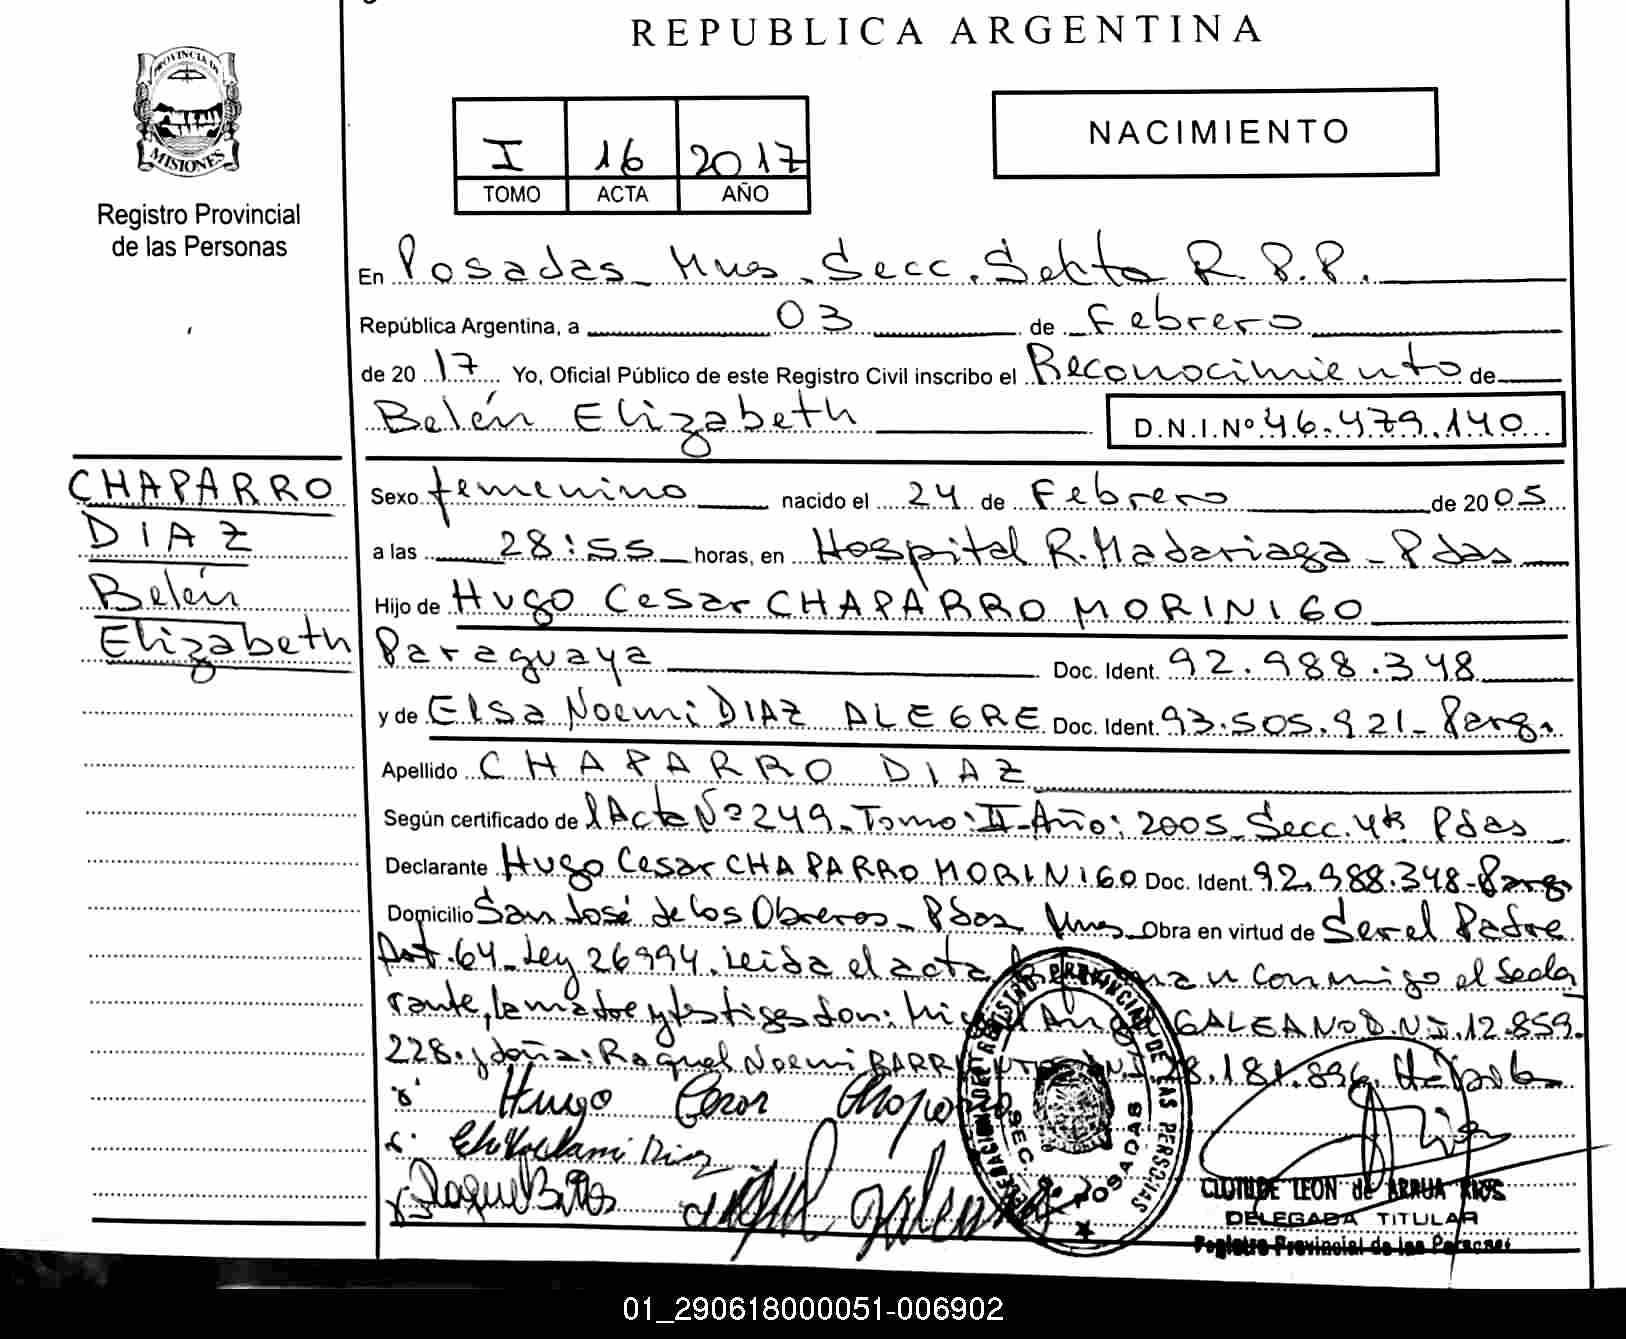 REPUBLICA ARGENTINA
PROVINCIA DE
MISIONES
Registro Provincial
de las Personas
I 16 2017
TOMO ACTA AÑO
NACIMIENTO
En Posadas Mnes. Secc. Sekta R.P.P.
República Argentina, a 03 de Febrero
de 2017 Yo, Oficial Público de este Registro Civil inscribo el Reconocimiento de
Belén Elizabeth D.N.I.Nº 46.479.140
CHAPARRO
DIAZ
Belén
Elizabeth
Sexo femenino nacido el 24 de Febrero de 2005
a las 28:55 horas, en Hospital R. Madariaga - Pdas
Hijo de Hugo Cesar CHAPARRO MORINIGO
Paraguaya Doc. Ident. 92.988.348
y de Elsa Noemi DIAZ ALEGRE Doc. Ident. 93.505.921 - Parg.
Apellido CHAPARRO DIAZ
Según certificado de l Acta Nº 249 - Tomo: II - Año: 2005 - Secc. 4ta Pdas
Declarante Hugo Cesar CHAPARRO MORINIGO Doc. Ident. 92.988.348 - Parg
Domicilio San José de los Obreros - Pdas Mnes Obra en virtud de Ser el Padre
Art. 64 - Ley 26994. Leida el acta conmigo el decla
rante, la madre y testigos don: GALEANO D.N.I. 12.859.
228. y doña: Raquel Noemi 28.181.896.
Hugo Cesar Chaparro
Diaz
REGISTRO PROVINCIAL DE LAS PERSONAS
SEC. 6ª POSADAS
CLOTILDE LEON de ARRUA RIOS
DELEGADA TITULAR
Registro Provincial de las Personas
01_290618000051-006902